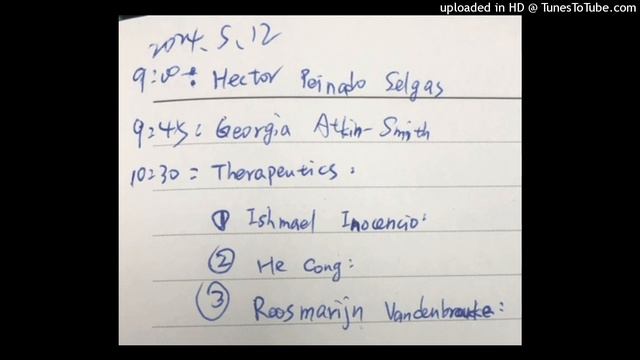 uploaded in HD @ TunesToTube.com
2024.5.12
9:00: Hector Peinado Selgas
9:45: Georgia Atkin-Smith
10:30: Therapeutics:
① Ishmael Inocencio:
② He Cong:
③ Roosmarijn Vandenbroucke: